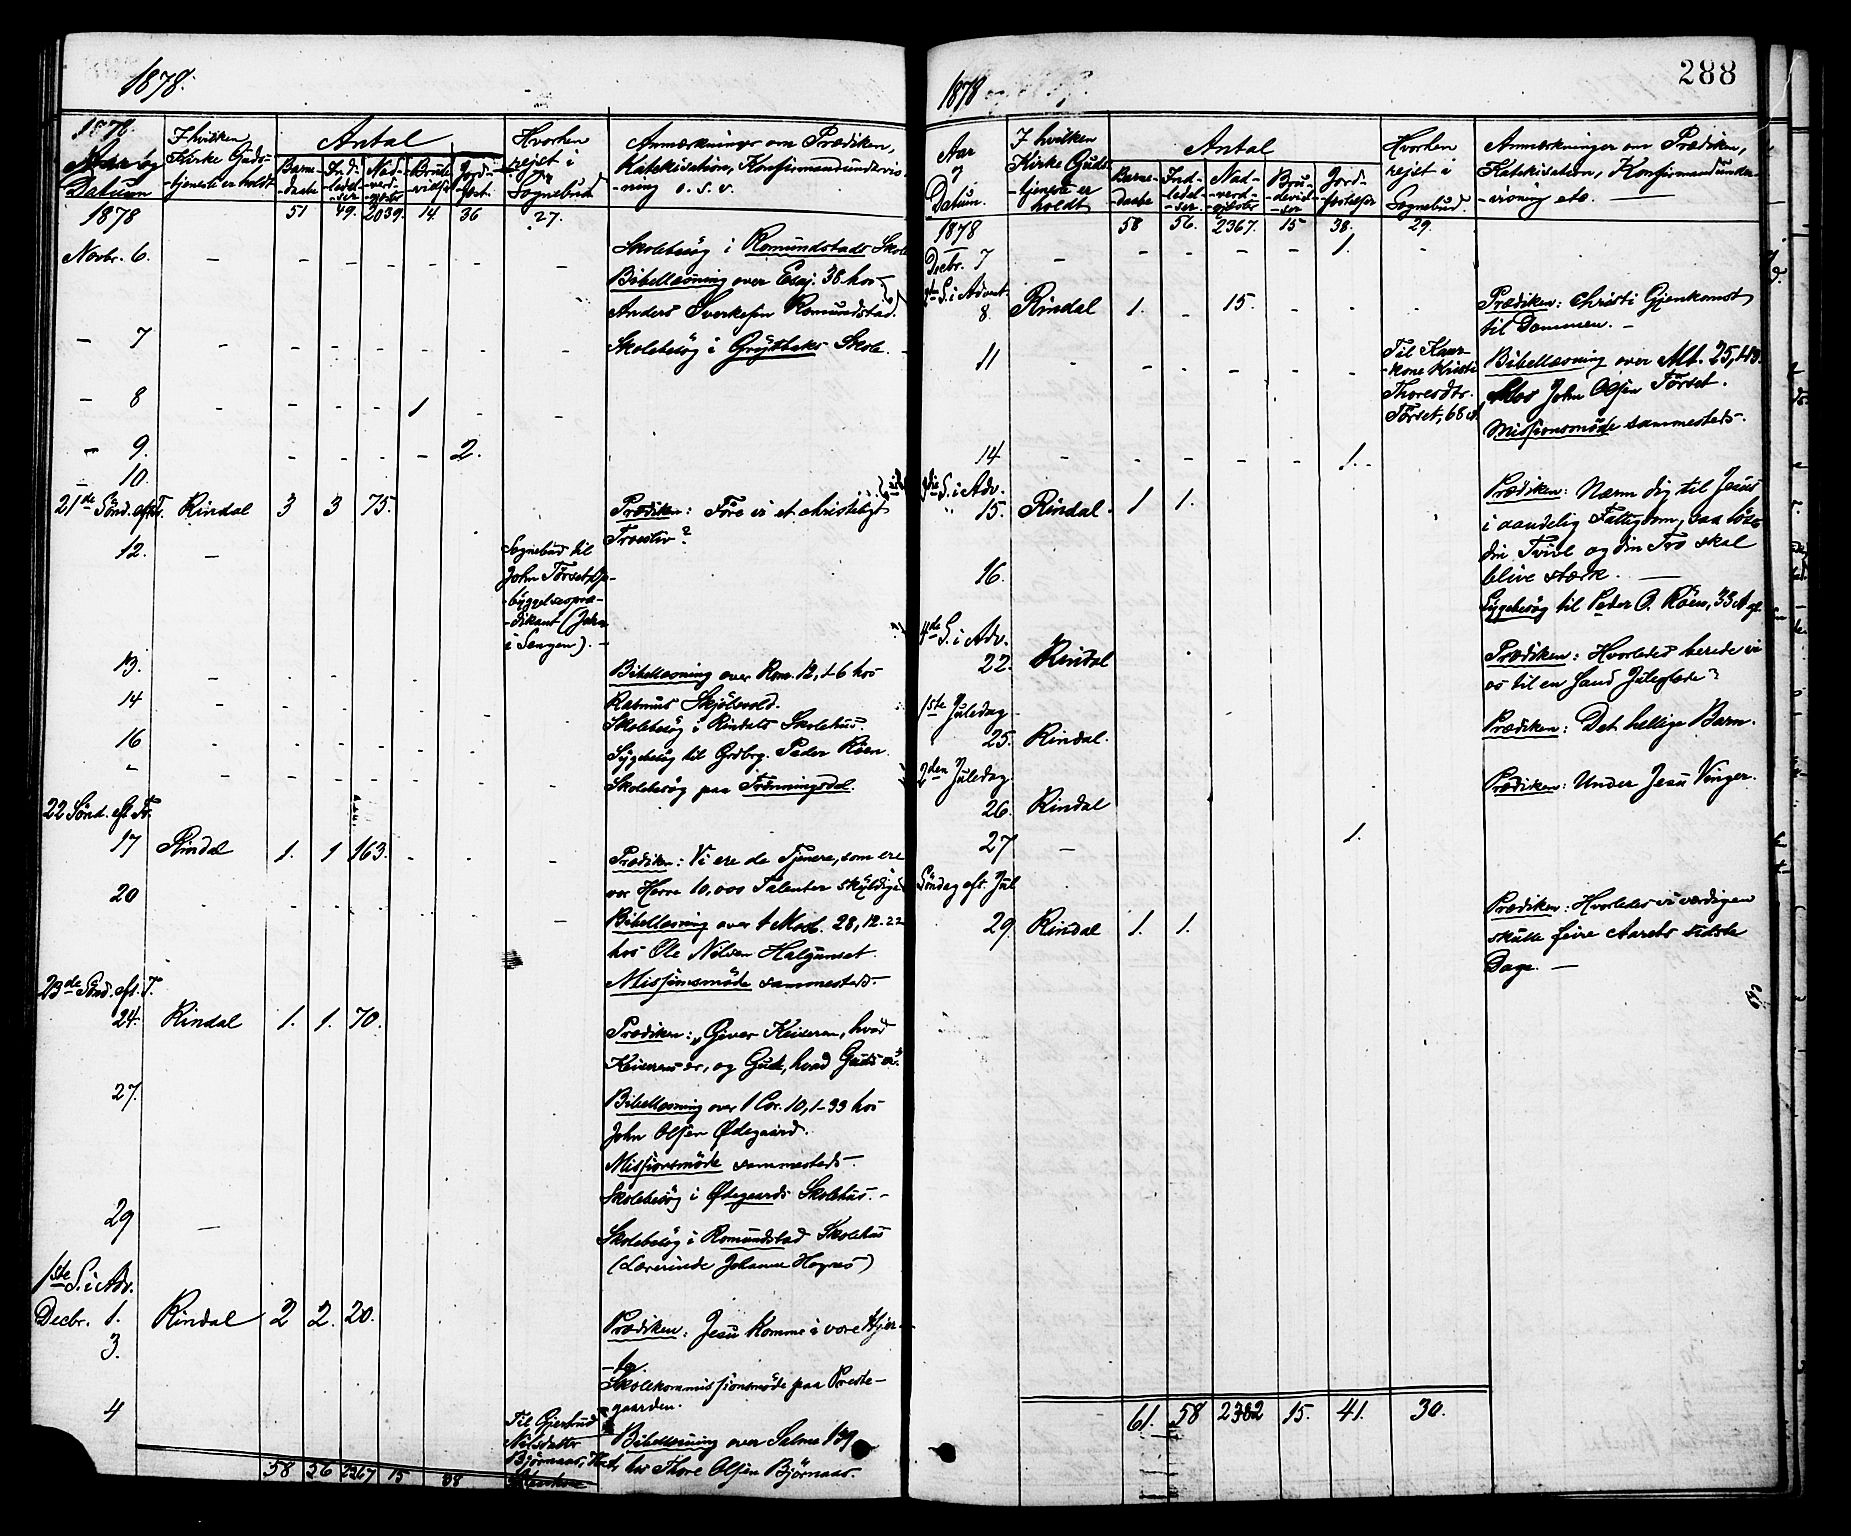 1878.
1878.
Aar og
Datum
I hvilken
Kirke Guds-
tjeneste er holdt
Antal
Barne-
daabe
Ind-
ledel-
ser
Nad-
verd-
gjester
Brude-
vielser
Jord-
fæst.
Hvorhen
rejst i
Sognebud
Anmærkninger om Prædiken,
Katekisation, Konfirmandundervis-
ning o. s. v.
1878 51 49. 2039. 14 36 27.
Novbr. 6. - Skolebesøg i Romundstads Skole
Bibellæsning over Esaj. 38 hos
Anders Sverkesen Romundstad.
- 7 - Skolebesøg i Grytbaks Skole.
- 8 - 1
- 9. - 2.
- 10.
21de Sönd. eft T. Rindal 3 3 75. Prædiken: Före vi et christeligt
Troesliv?
12. - Sognebud til
John Törset
-byggelsespræ-
dikant
i Sengen). -
13. - Bibellæsning over Rom. 12, hos
Rasmus Skjölsvold.
14 - Skolebesøg i Rindals Skolehus
16 - Sygebesög til Grdbrg. Peder Röen
" - Skolebesøg paa Tröningsdal.
22 Sönd. eft Tr.
17 Rindal 1. 1 163. Prædiken: Vi ere de Tjenere, som ere
vor Herre 10,000 Talenter skyldige
20 Bibellæsning over 28, 12-22
hos Ole Nilsen Halgunset.
Missjonsmöde sammesteds.
23de Sönd. eft. T.
24. Rindal 1. 1. 70. Prædiken: "Giver Keiseren, hvad
Keiserens er, og Gud, hvad Guds er."
27. Bibellæsning over 1 Cor. 10, 1-33 hos
John Olsen Ödegaard.
Missjonsmöde sammesteds.
Skolebesøg i Ödegaards Skolehus. -
29 - Skolebesøg i Romundstad Skolehus
(Lærerinde Johanne
1ste S. i Adv.
Decbr. 1. Rindal 2 2. 20. Prædiken: Jesu Komme i vore Hjer-
-ter.
3. Skolekommissjonsmöde paa Preste-
gaarden.
4 Til Gjertrud
Nilsdatter
Björnaas,
Bibellæsning over Salme 139
hos Thore Olsen Björnaas.
58 56 2367 15 38
288
1878
Aar
og
Datum.
I hvilken
Kirke Guds-
tjeneste er
holdt
Antal
Barne-
daabe
Ind-
ledel-
ser
Nad-
verd-
gjester
Bru-
deviel-
ser
Jord-
fæstelser
Hvorhen
rejst i
Sognebud.
Anmærkninger om Prædiken,
Katekisation, Konfirmandunder-
visning etc.
1878 58 56. 2367. 15 38. 29.
Decbr. 7 - 1.
2den S. i Advent
8. Rindal 1. - 15. Prædiken: Christi Gjenkomst
til Dommen. -
11 - Til
-kone
Thoresdtr.
Törset, 68
Bibellæsning over Mt. 25,
hos John Olsen Törset.
Missjonsmöde sammesteds.
14 - 1.
3die S. i Adv.
" 15. Rindal. 1 1. Prædiken: Nærm dig til Jesus
i aandelig Fattigdom, saa löses
din Tvivl og din Tro skal
blive stærk. -
16. Sygebesøg til Peder O. Röen, 33
4de S. i Adv.
22. Rindal Prædiken: Hvorledes berede vi
os til en sand Juleglæde?
1ste Juledag
25. Rindal. Prædiken: Det hellige Barn.
2den Juledag
26. Rindal Prædiken: Under Jesu Vinger.
27 - 1.
Söndag eft. Jul
29. Rindal 1. 1. Prædiken: Hvorledes vi værdigen
skulle feire Aarets sidste
Dage. -
61. 58 2382 15. 41. 30.